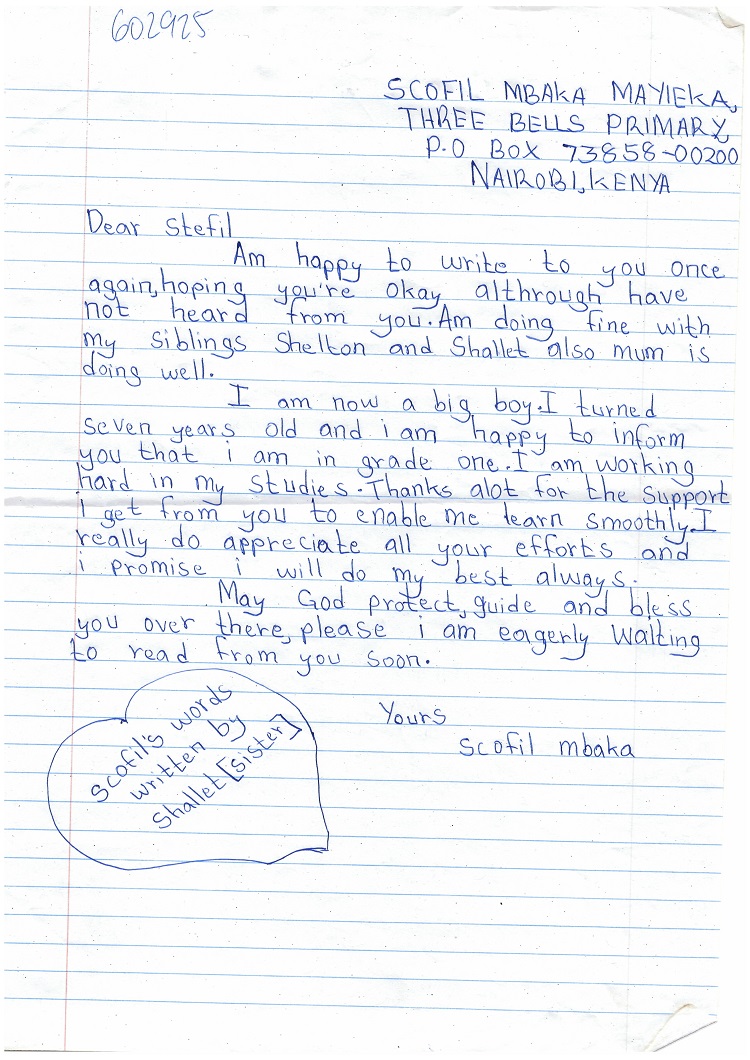 602925
SCOFIL MBAKA MAYIEKA,
THREE BELLS PRIMARY,
P.O BOX 73858-00200
NAIROBI,KENYA
Dear Stefil
Am happy to write to you once
again,hoping you're okay althrough have
not heard from you.Am doing fine with
my siblings Shelton and Shallet also mum is
doing well.
I am now a big boy.I turned
seven years old and i am happy to inform
you that i am in grade one.I am working
hard in my studies.Thanks alot for the support
i get from you to enable me learn smoothly.I
really do appreciate all your efforts and
i promise i will do my best always.
May God protect,guide and bless
you over there,please i am eagerly waiting
to read from you soon.
Yours
scofil mbaka
scofil's words
written by
shallet[sister]